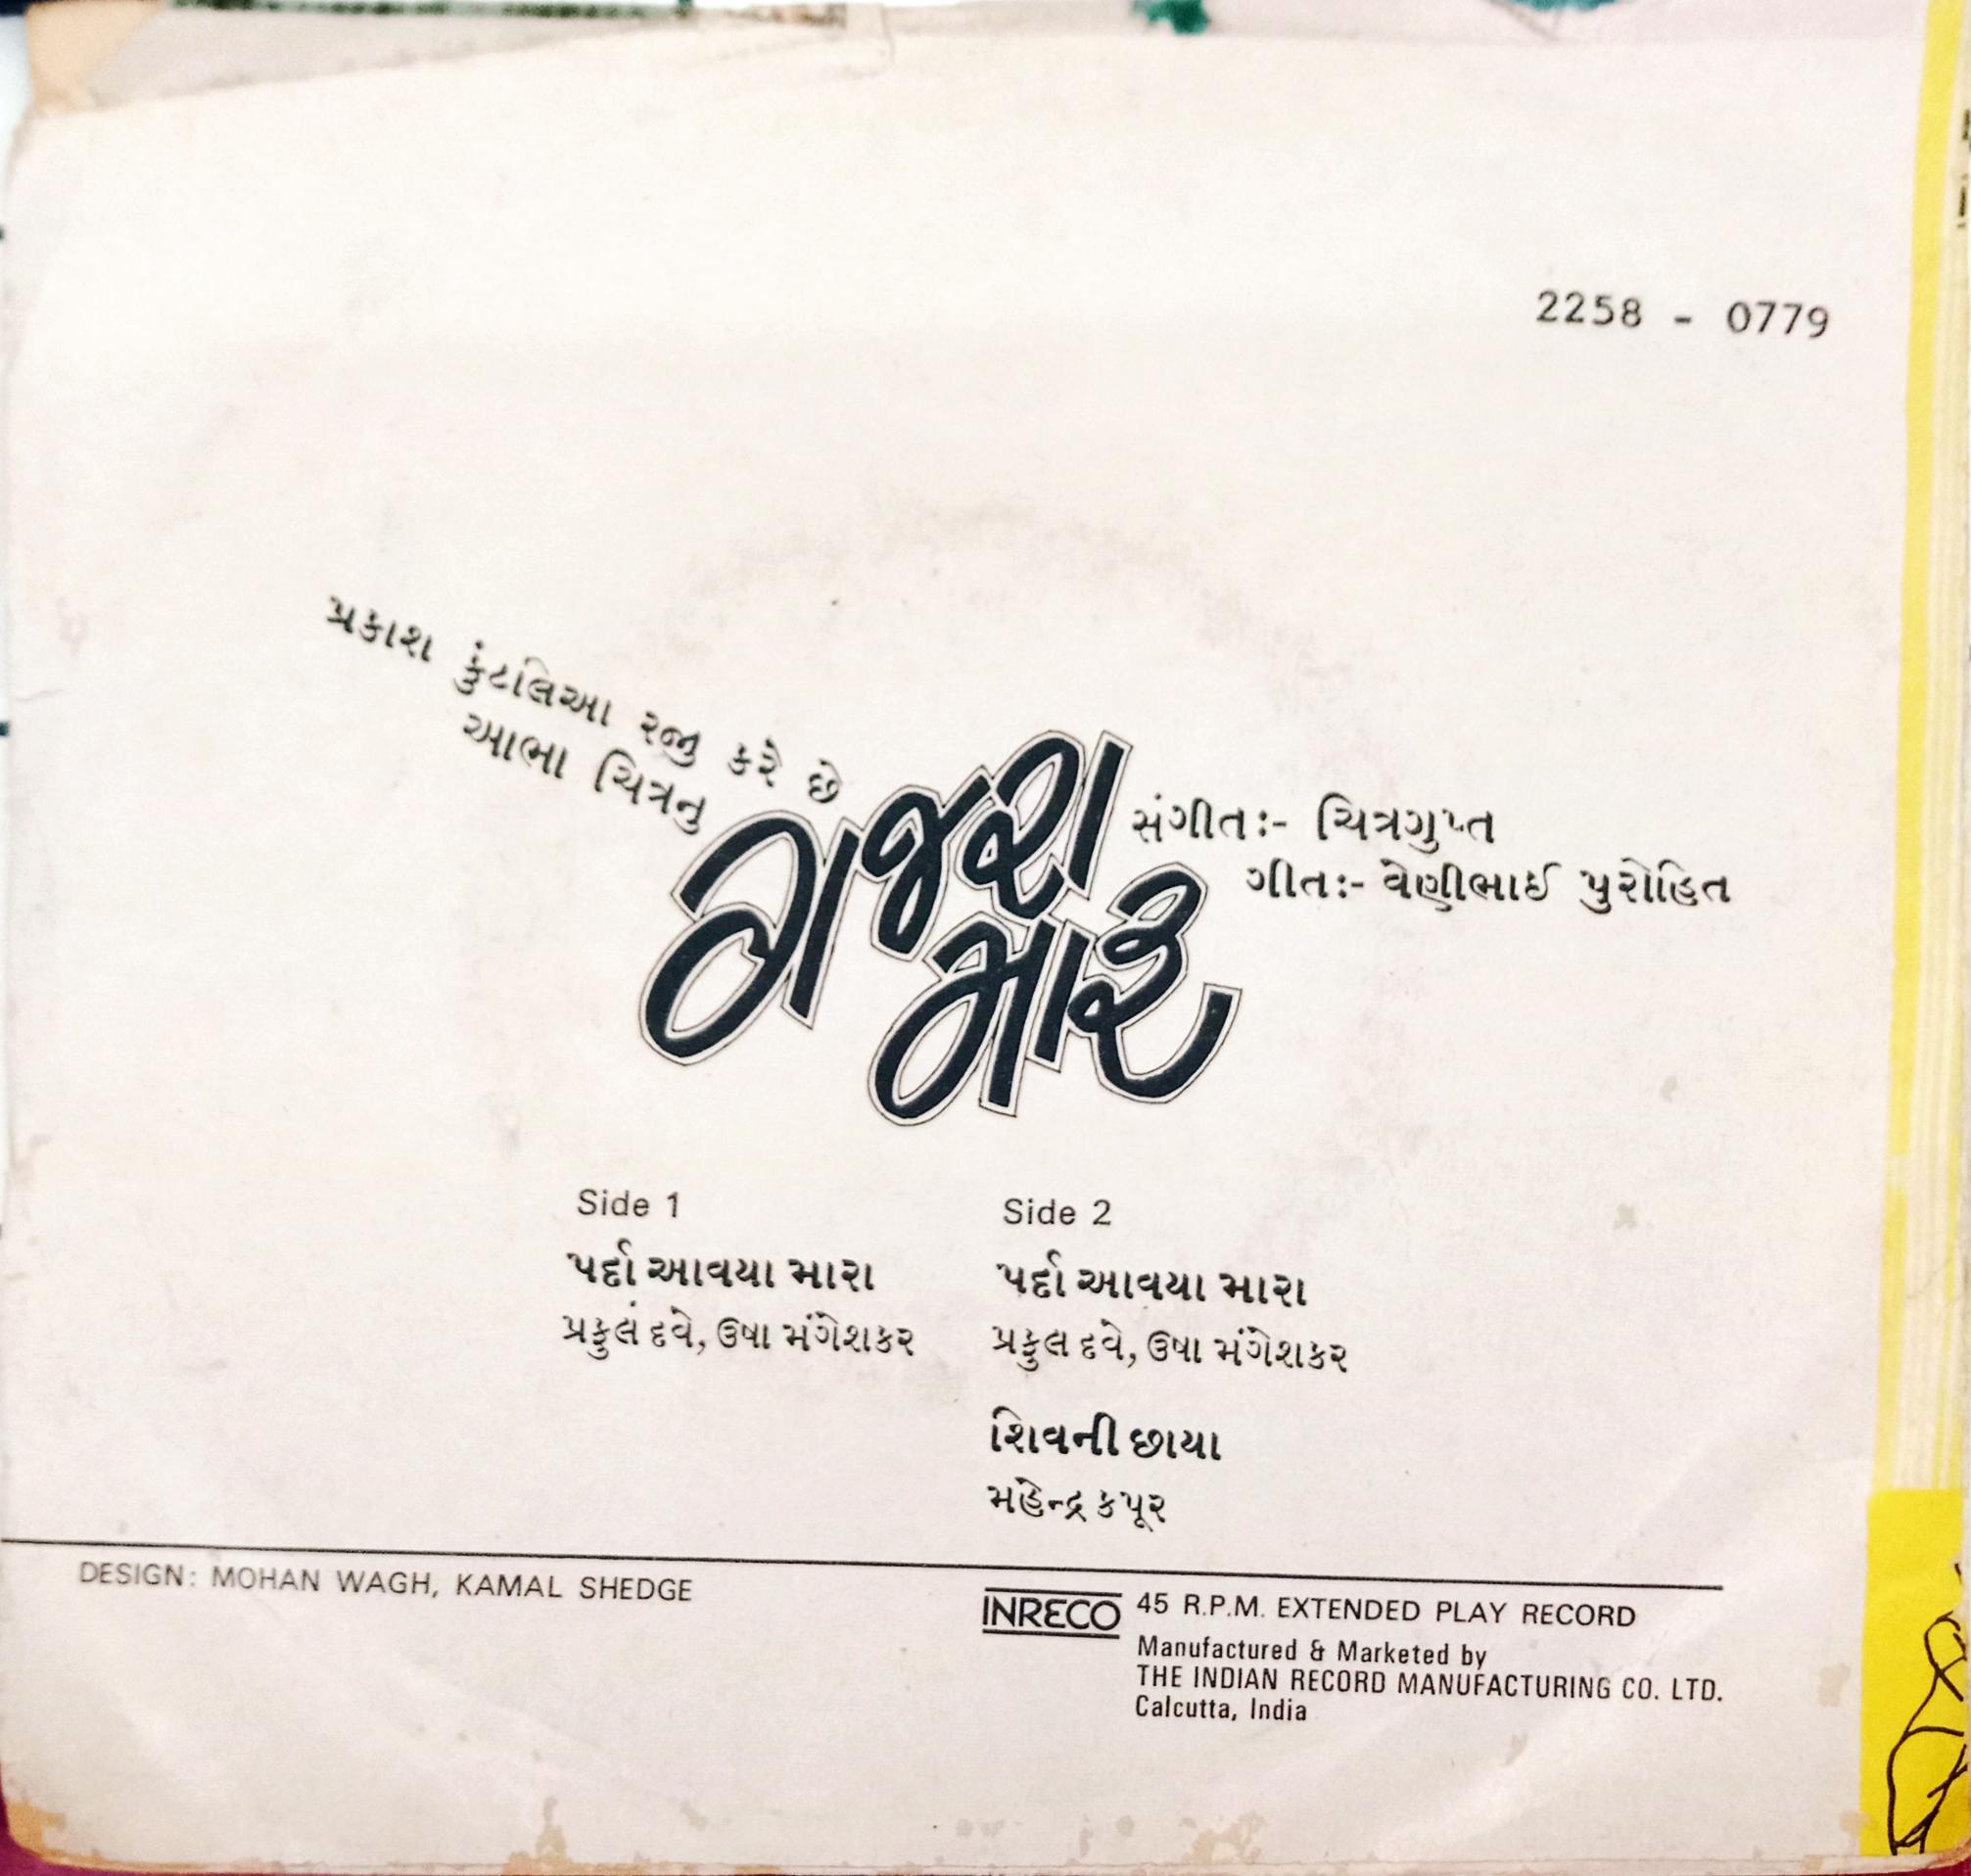 2258 - 0779
પ્રકાશ કુંટલિઆ રજી કરે છે
આભા ચિત્રનુ
ગજરા
મારૂ
સંગીતઃ- ચિત્રગુપ્ત
ગીતઃ- વેણીભાઈ પુરોહિત
Side 1
પર્દા આવયા મારા
પ્રફુલ દવે, ઉષા મંગેશકર
Side 2
પર્દા આવયા મારા
પ્રફુલ દવે, ઉષા મંગેશકર
શિવની છાયા
મહેન્દ્ર કપૂર
DESIGN: MOHAN WAGH, KAMAL SHEDGE
INRECO
45 R.P.M. EXTENDED PLAY RECORD
Manufactured & Marketed by
THE INDIAN RECORD MANUFACTURING CO. LTD.
Calcutta, India